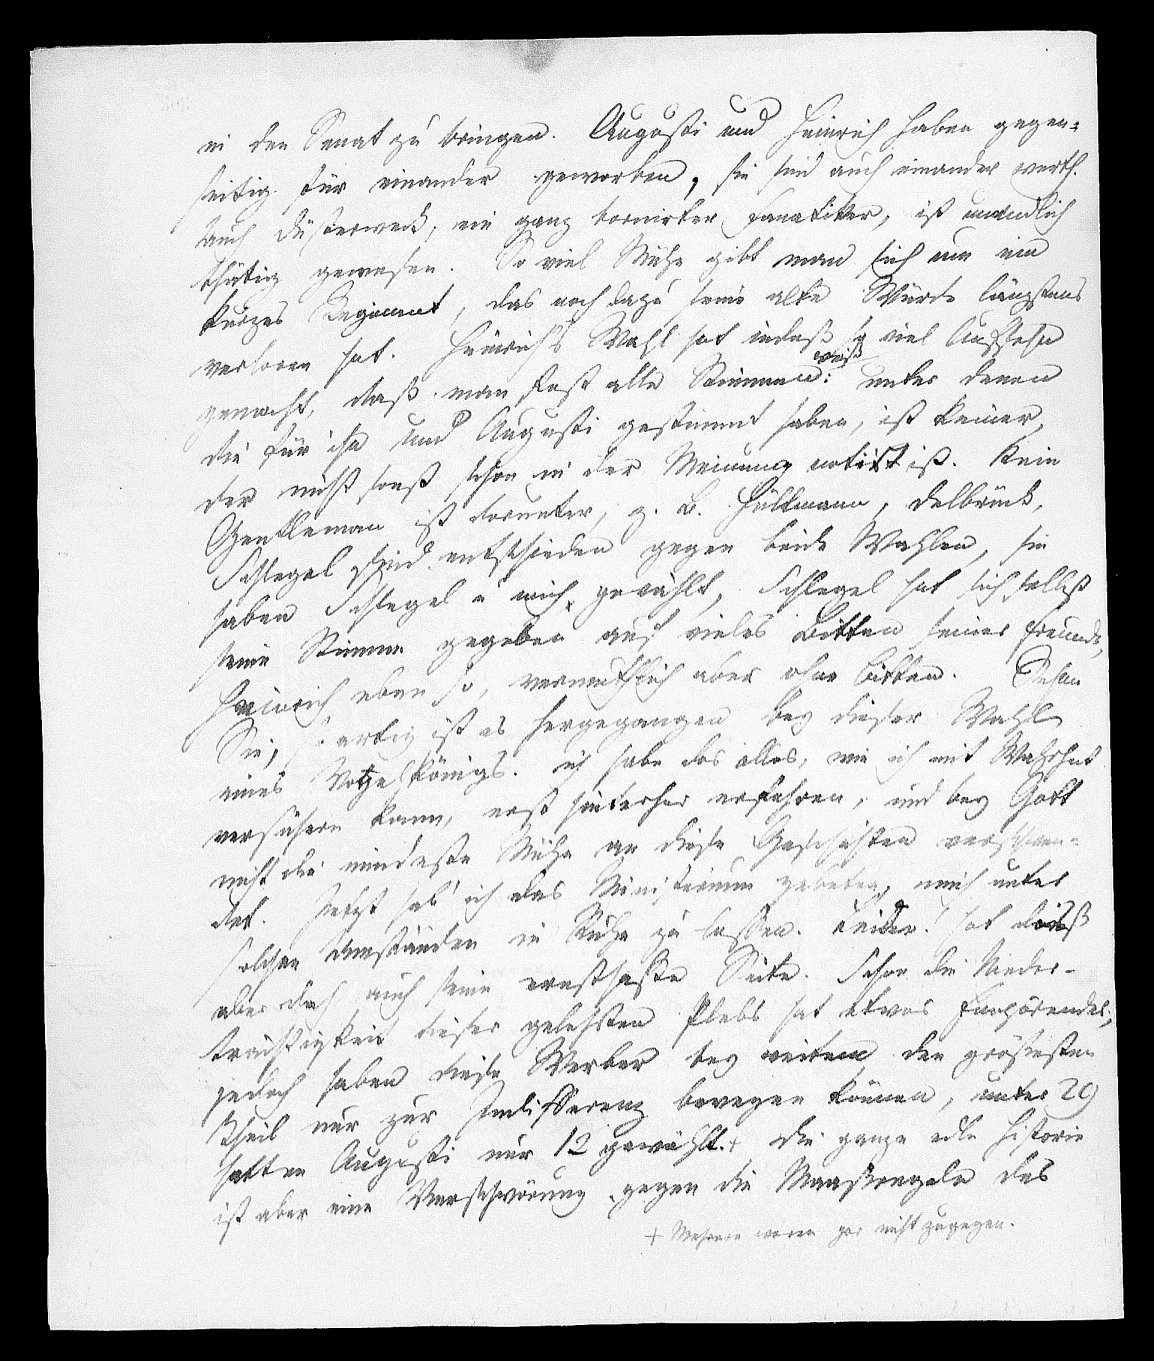 in den Senat zu bringen. Augusti und Heinrich haben gegen=
seitig für einander geworben, sie sind auch einander werth.
Auch Düsterweck, ein ganz bornirter Fanatiker, ist unendlich
thätig gewesen. So viel Mühe gibt man sich um ein
kurzes Regiment, das noch dazu seine alte Würde längstens
verloren hat. Heinrich's Wahl hat indeß so viel Aufsehn
gemacht, daß man fast alle Stimmen weiß: unter denen
die für ihn und Augusti gestimmt haben, ist keiner,
der nicht sonst schon in der Meinung notirt ist. Kein
Gentleman ist darunter, z. B. Hüllmann, Delbrück,
Schlegel sind entschieden gegen beide Wahlen, sie
haben Schlegel u mich gewählt, Schlegel hat sich selbst
seine Stimme gegeben auf vieles Bitten seiner Freunde,
Heinrich eben so, vermuthlich aber ohne bitten. Sehen
Sie, so artig ist es hergegangen bey dieser Wahl
eines Vogelkönigs. ich habe das alles, wie ich mit Wahrheit
versichern kann, erst hinterher erfahren, und bey Gott
nicht die mindeste Mühe an diese Geschichten verschwen=
det. Jetzt hab' ich das Ministerium gebeten, mich unter
solchen Umständen in Ruhe zu lassen. Leider! hat dieß
aber doch auch seine ernsthafte Seite. Schon die Nieder-
trächtigkeit dieses gelehrten Plebs hat etwas Empörendes;
jedoch haben diese Werber bey weitem den größesten
Theil nur zur Indifferenz bewegen können, unter 29
hatten Augusti nur 12 gewählt.+ Die ganze edle Historie
ist aber eine Verschwörung gegen die Maaßregeln des
+ Mehrere waren gar nicht zugegen.